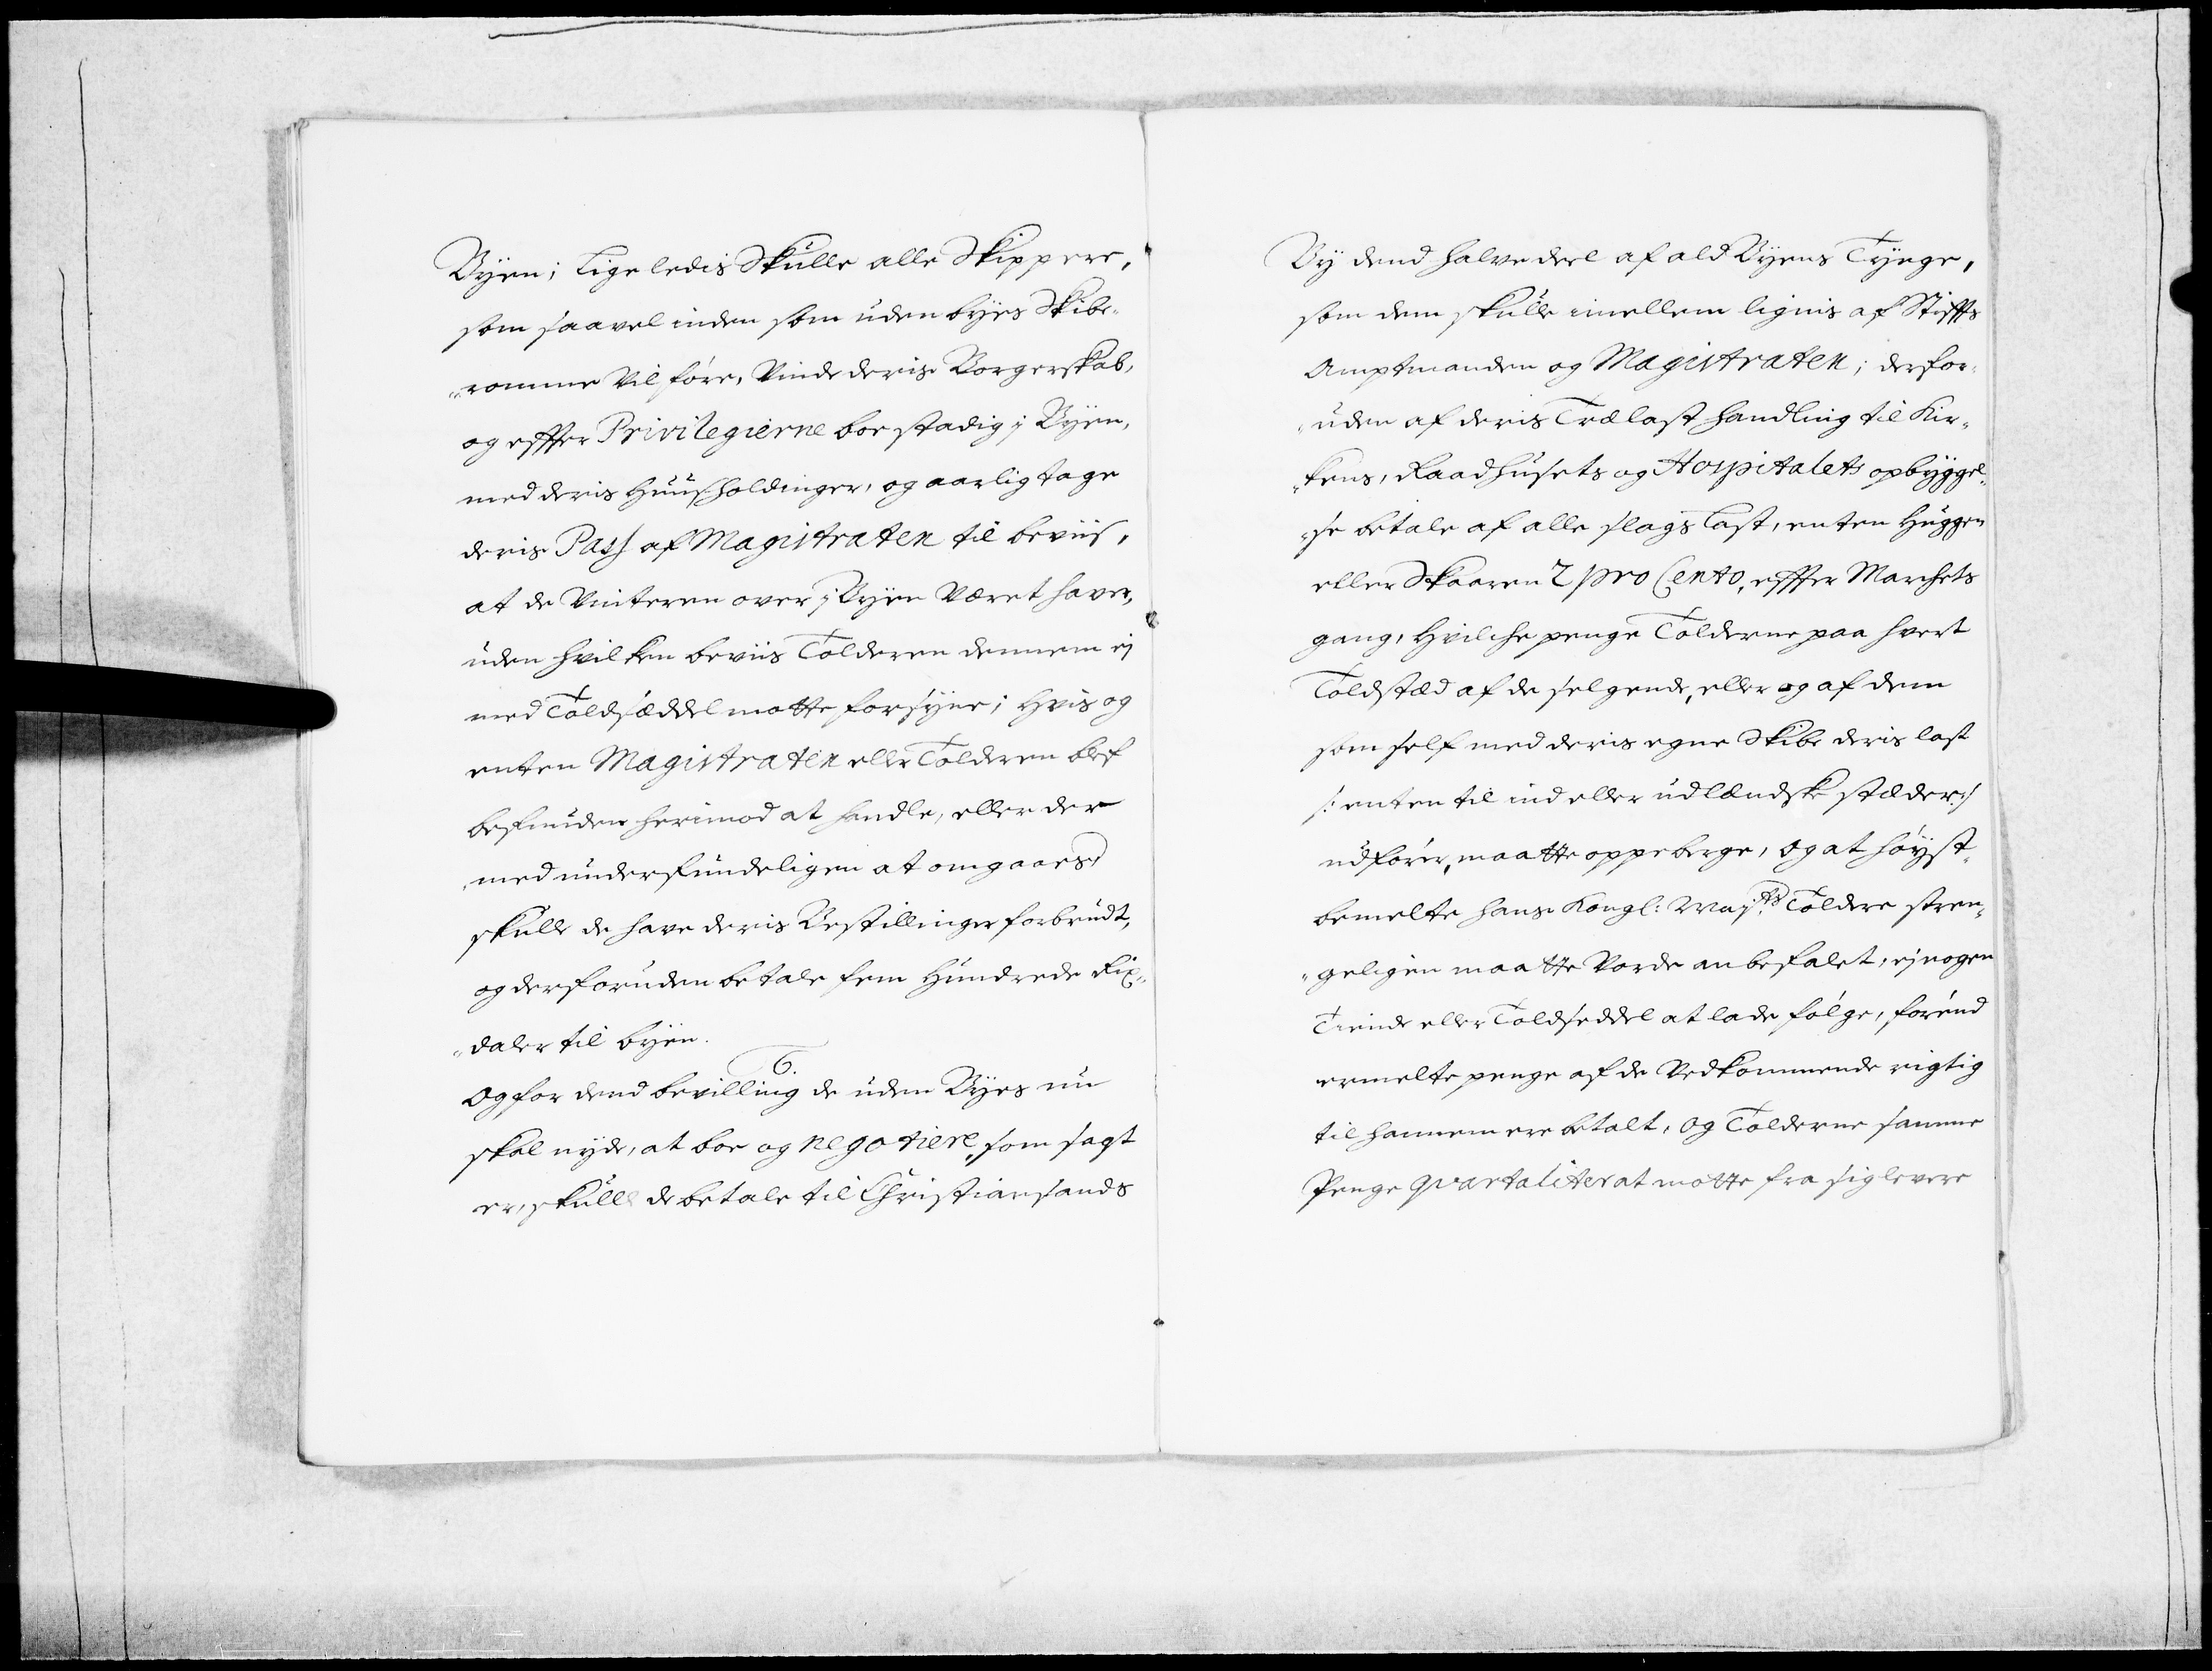 Byen; Lige ledis Skulle alle Skippere,
som saavel inden som uden byes Skibe-
„romme vil före, vinde deris Borgerskab,
og effter Privilegierne boe stadig i Byen,
med deris Huusholdinger, og aarlig tage
deris Pass af Magistraten til beviis,
at de vinteren over i Byen Været haver,
uden hvilken beviis Tolderen dennem ej
med Toldsæddel motte forsyne; Hvis og
enten Magistraten eller Tolderen blef
befunden herimod at handle, eller der
„med underfundeligen at omgaaes,
skulle de have deris Bestillinger forbrudt,
og derforuden betale fem Hundrede Rix„
„daler til byen.
6.
Og for dend bevilling de uden Byes nu
skal nyde, at boe og negotiere, som sagt
er, skulle de betale til Christiansands
By dend halve deel af ald Byens Tynge,
som dem skulle imellem lignis af Stiffts
Amptmanden og Magistraten; derfor-
„uden af deris Trælast handling til Kir„
„kens, Raadhusets og Hospitalets opbyggel„
„se betale af alle slags Last, enten Huggen
eller Skaaren 2 pro Cento, effter Marchets
gang, Hvilche penge Tolderne paa hvert
Toldstæd af de selgende, eller og af dem
som self med deris egne Skibe deris last
/: enten til ind eller udlændske stæder :/
udförer, maatte oppeberge, og at höyst-
bemelte hans Kongl: Maj.ts Toldere stren„
„geligen maatte Vorde anbefalet, ej nogen
Tiende eller Toldseddel at lade fölge, förend
ermelte penge af de Vedkommende rigtig
til hannem ere betalt, og Tolderne samme
Penge qvartaliter at motte fra sig levere